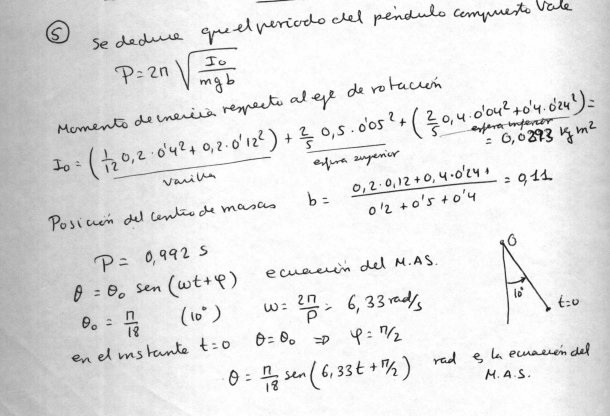 ⑤ Se deduce que el periodo del péndulo compuesto vale
P = 2π √(I₀ / mgb)
Momento de inercia respecto al eje de rotación
I₀ = (1/12 0,2 · 0'4² + 0,2 · 0'12²) + 2/5 0,5 · 0'05² + (2/5 0,4 · 0'04² + 0'4 · 0'24²) =
varilla esfera superior esfera inferior = 0,0293 kg m²
Posición del centro de masas b = (0,2 · 0,12 + 0,4 · 0'24) / (0'2 + 0'5 + 0'4) = 0,11
P = 0,992 s
θ = θ₀ sen (ωt + φ) ecuación del M.A.S.
θ₀ = π/18 (10°) ω = 2π/P = 6,33 rad/s
en el instante t=0 θ = θ₀ ⇒ φ = π/2
θ = π/18 sen (6,33t + π/2) rad es la ecuación del
M.A.S.
O
10°
t=0